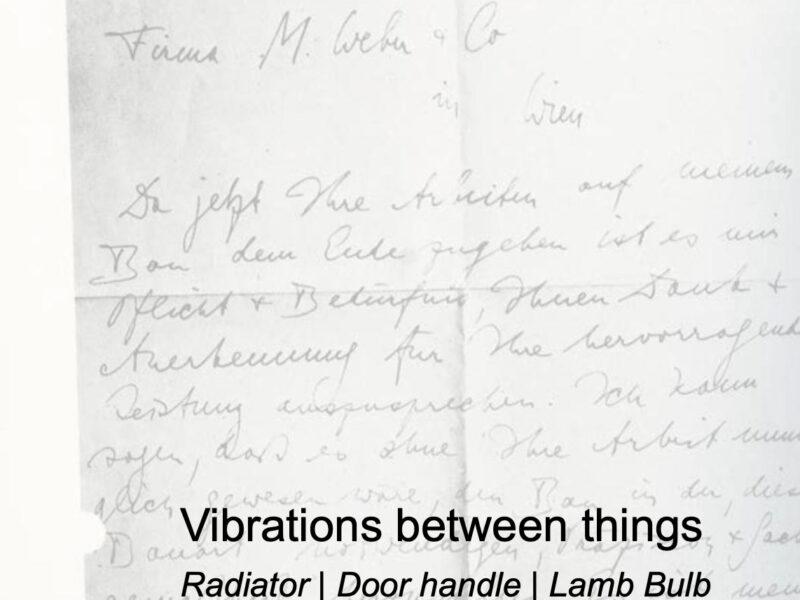 Firma M. Weber & Co
in Wien
Da jetzt Ihre Arbeiten auf meinem
Bau dem Ende zugehen ist es mir
Pflicht + Bedürfnis, Ihnen Dank +
Anerkennung für Ihre hervorragende
Leistung auszusprechen. Ich kann
sagen, daß es ohne Ihre Arbeit unmö
glich gewesen wäre, den Bau in der, diese
Bauart notwendigen, Präzision + Sach
Vibrations between things
Radiator | Door handle | Lamb Bulb